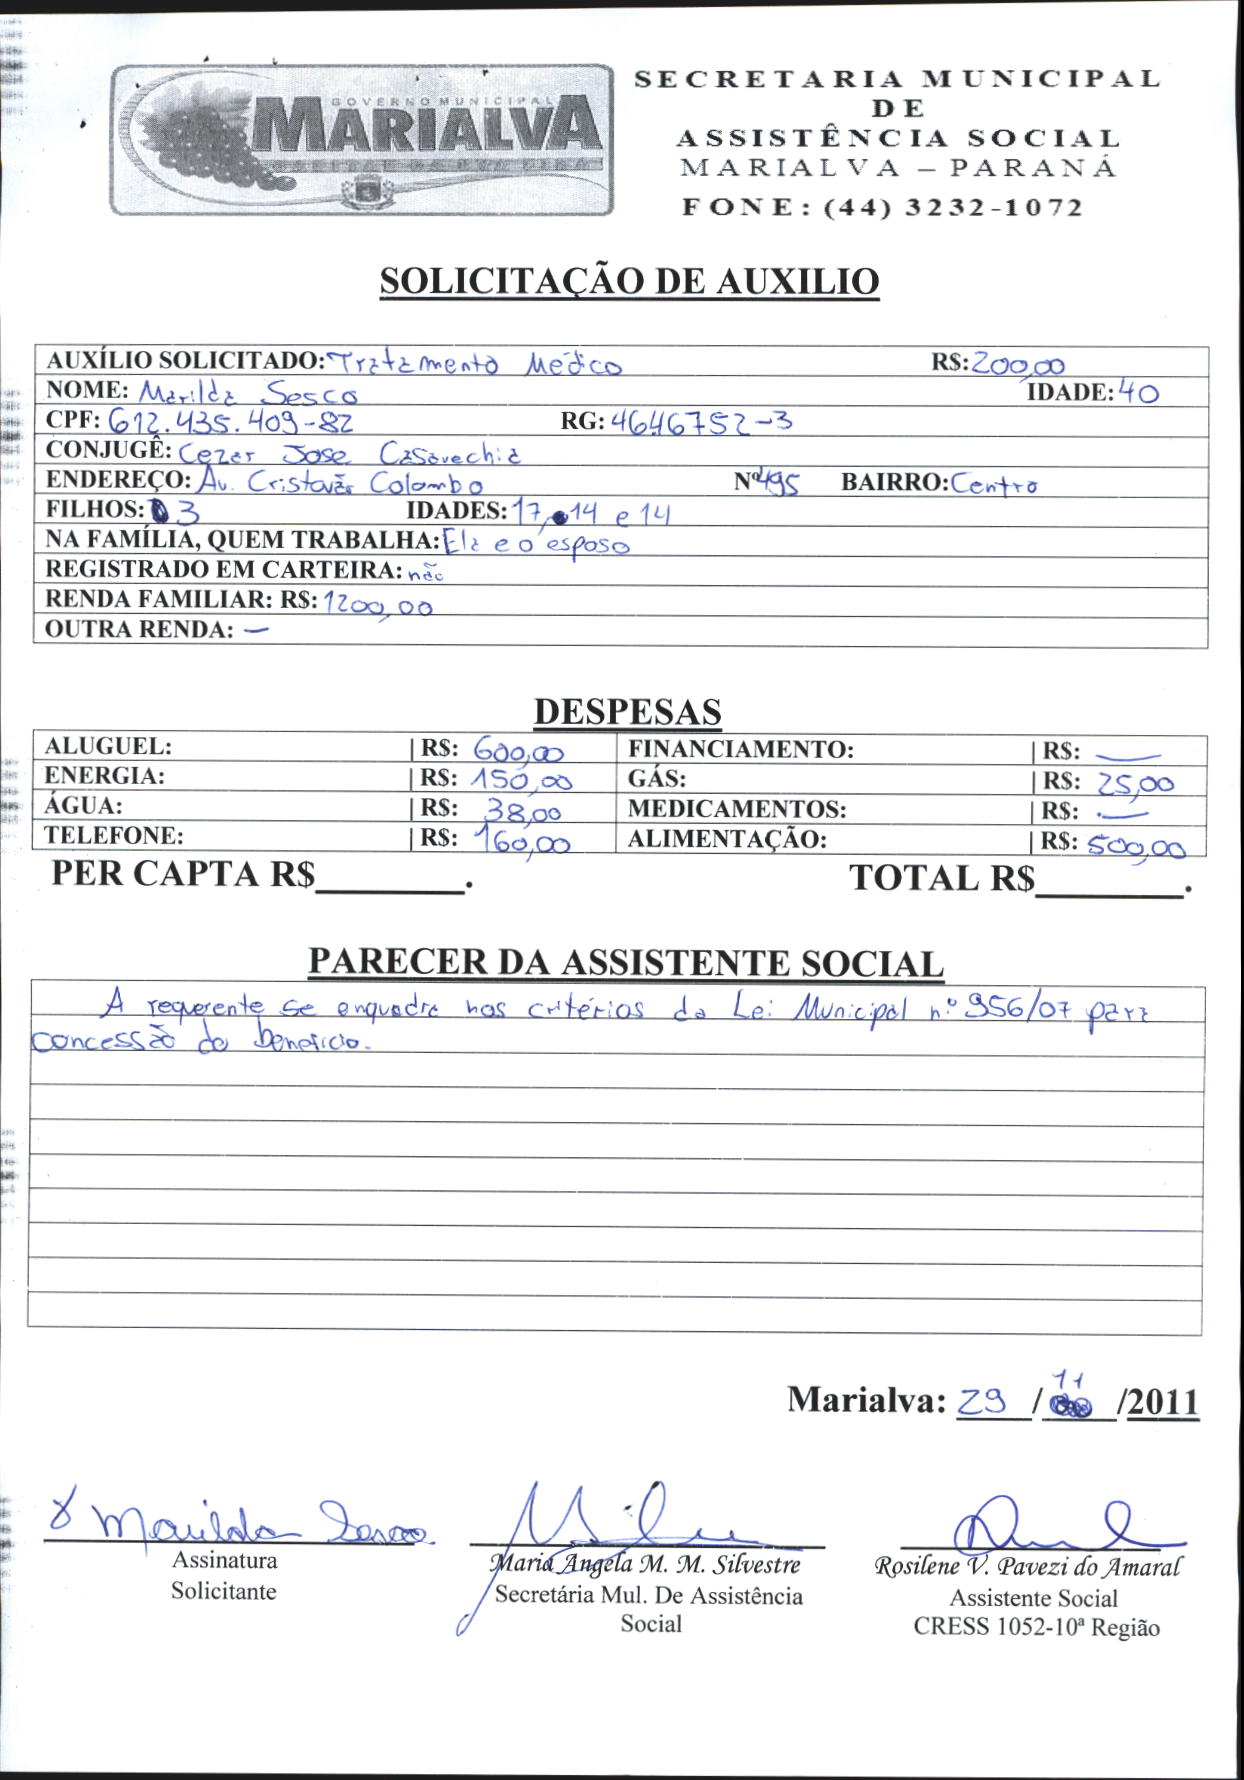 GOVERNO MUNICIPAL
MARIALVA
SECRETARIA MUNICIPAL
DE
ASSISTÊNCIA SOCIAL
MARIALVA – PARANÁ
FONE: (44) 3232-1072
SOLICITAÇÃO DE AUXILIO
AUXÍLIO SOLICITADO: Tratamento Médico R$: 200,00
NOME: Marilda Sesco IDADE: 40
CPF: 612.435.409-82 RG: 4646752-3
CONJUGÊ: Cezar Jose Casavechia
ENDEREÇO: Av. Cristovão Colombo Nº 495 BAIRRO: Centro
FILHOS: 3 IDADES: 17, 14 e 14
NA FAMÍLIA, QUEM TRABALHA: Ela e o esposo
REGISTRADO EM CARTEIRA: não
RENDA FAMILIAR: R$: 1200,00
OUTRA RENDA: —
DESPESAS
ALUGUEL: | R$: 600,00 FINANCIAMENTO: | R$: —
ENERGIA: | R$: 150,00 GÁS: | R$: 25,00
ÁGUA: | R$: 38,00 MEDICAMENTOS: | R$: —
TELEFONE: | R$: 160,00 ALIMENTAÇÃO: | R$: 500,00
PER CAPTA R$________. TOTAL R$________.
PARECER DA ASSISTENTE SOCIAL
A requerente se enquadra nos critérios da Lei Municipal nº 956/07 para
concessão do beneficio.
Marialva: 29 / 11 /2011
Marilda Sesco
Assinatura
Solicitante
Maria Angela M. M. Silvestre
Secretária Mul. De Assistência
Social
Rosilene V. Pavezi do Amaral
Assistente Social
CRESS 1052-10ª Região